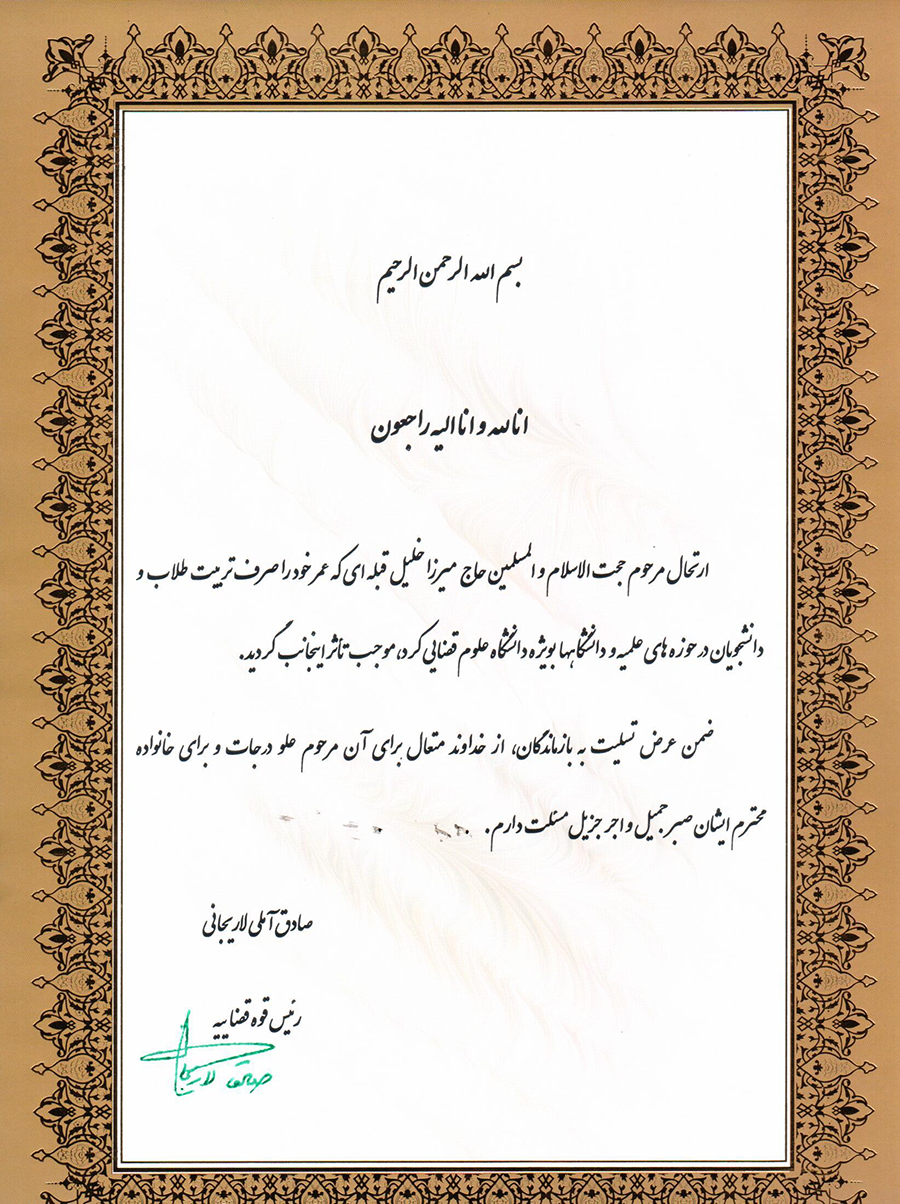 بسم الله الرحمن الرحیم
انا لله و انا الیه راجعون
ارتحال مرحوم حجت الاسلام و المسلمین حاج میرزا خلیل قبله ای که عمر خود را صرف تربیت طلاب و
دانشجویان در حوزه های علمیه و دانشگاهها بویژه دانشگاه علوم قضایی کرد، موجب تاثر اینجانب گردید.
ضمن عرض تسلیت به بازماندگان، از خداوند متعال برای آن مرحوم علو درجات و برای خانواده
محترم ایشان صبر جمیل و اجر جزیل مسئلت دارم.
صادق آملی لاریجانی
رئیس قوه قضاییه
صادق لاریجانی